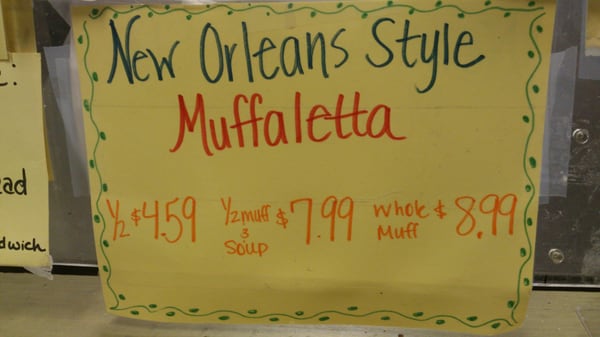 New Orleans Style
Muffaletta
1/2 $4.59
1/2 muff
&
Soup
$7.99
Whole
Muff
$8.99
ad
dwich